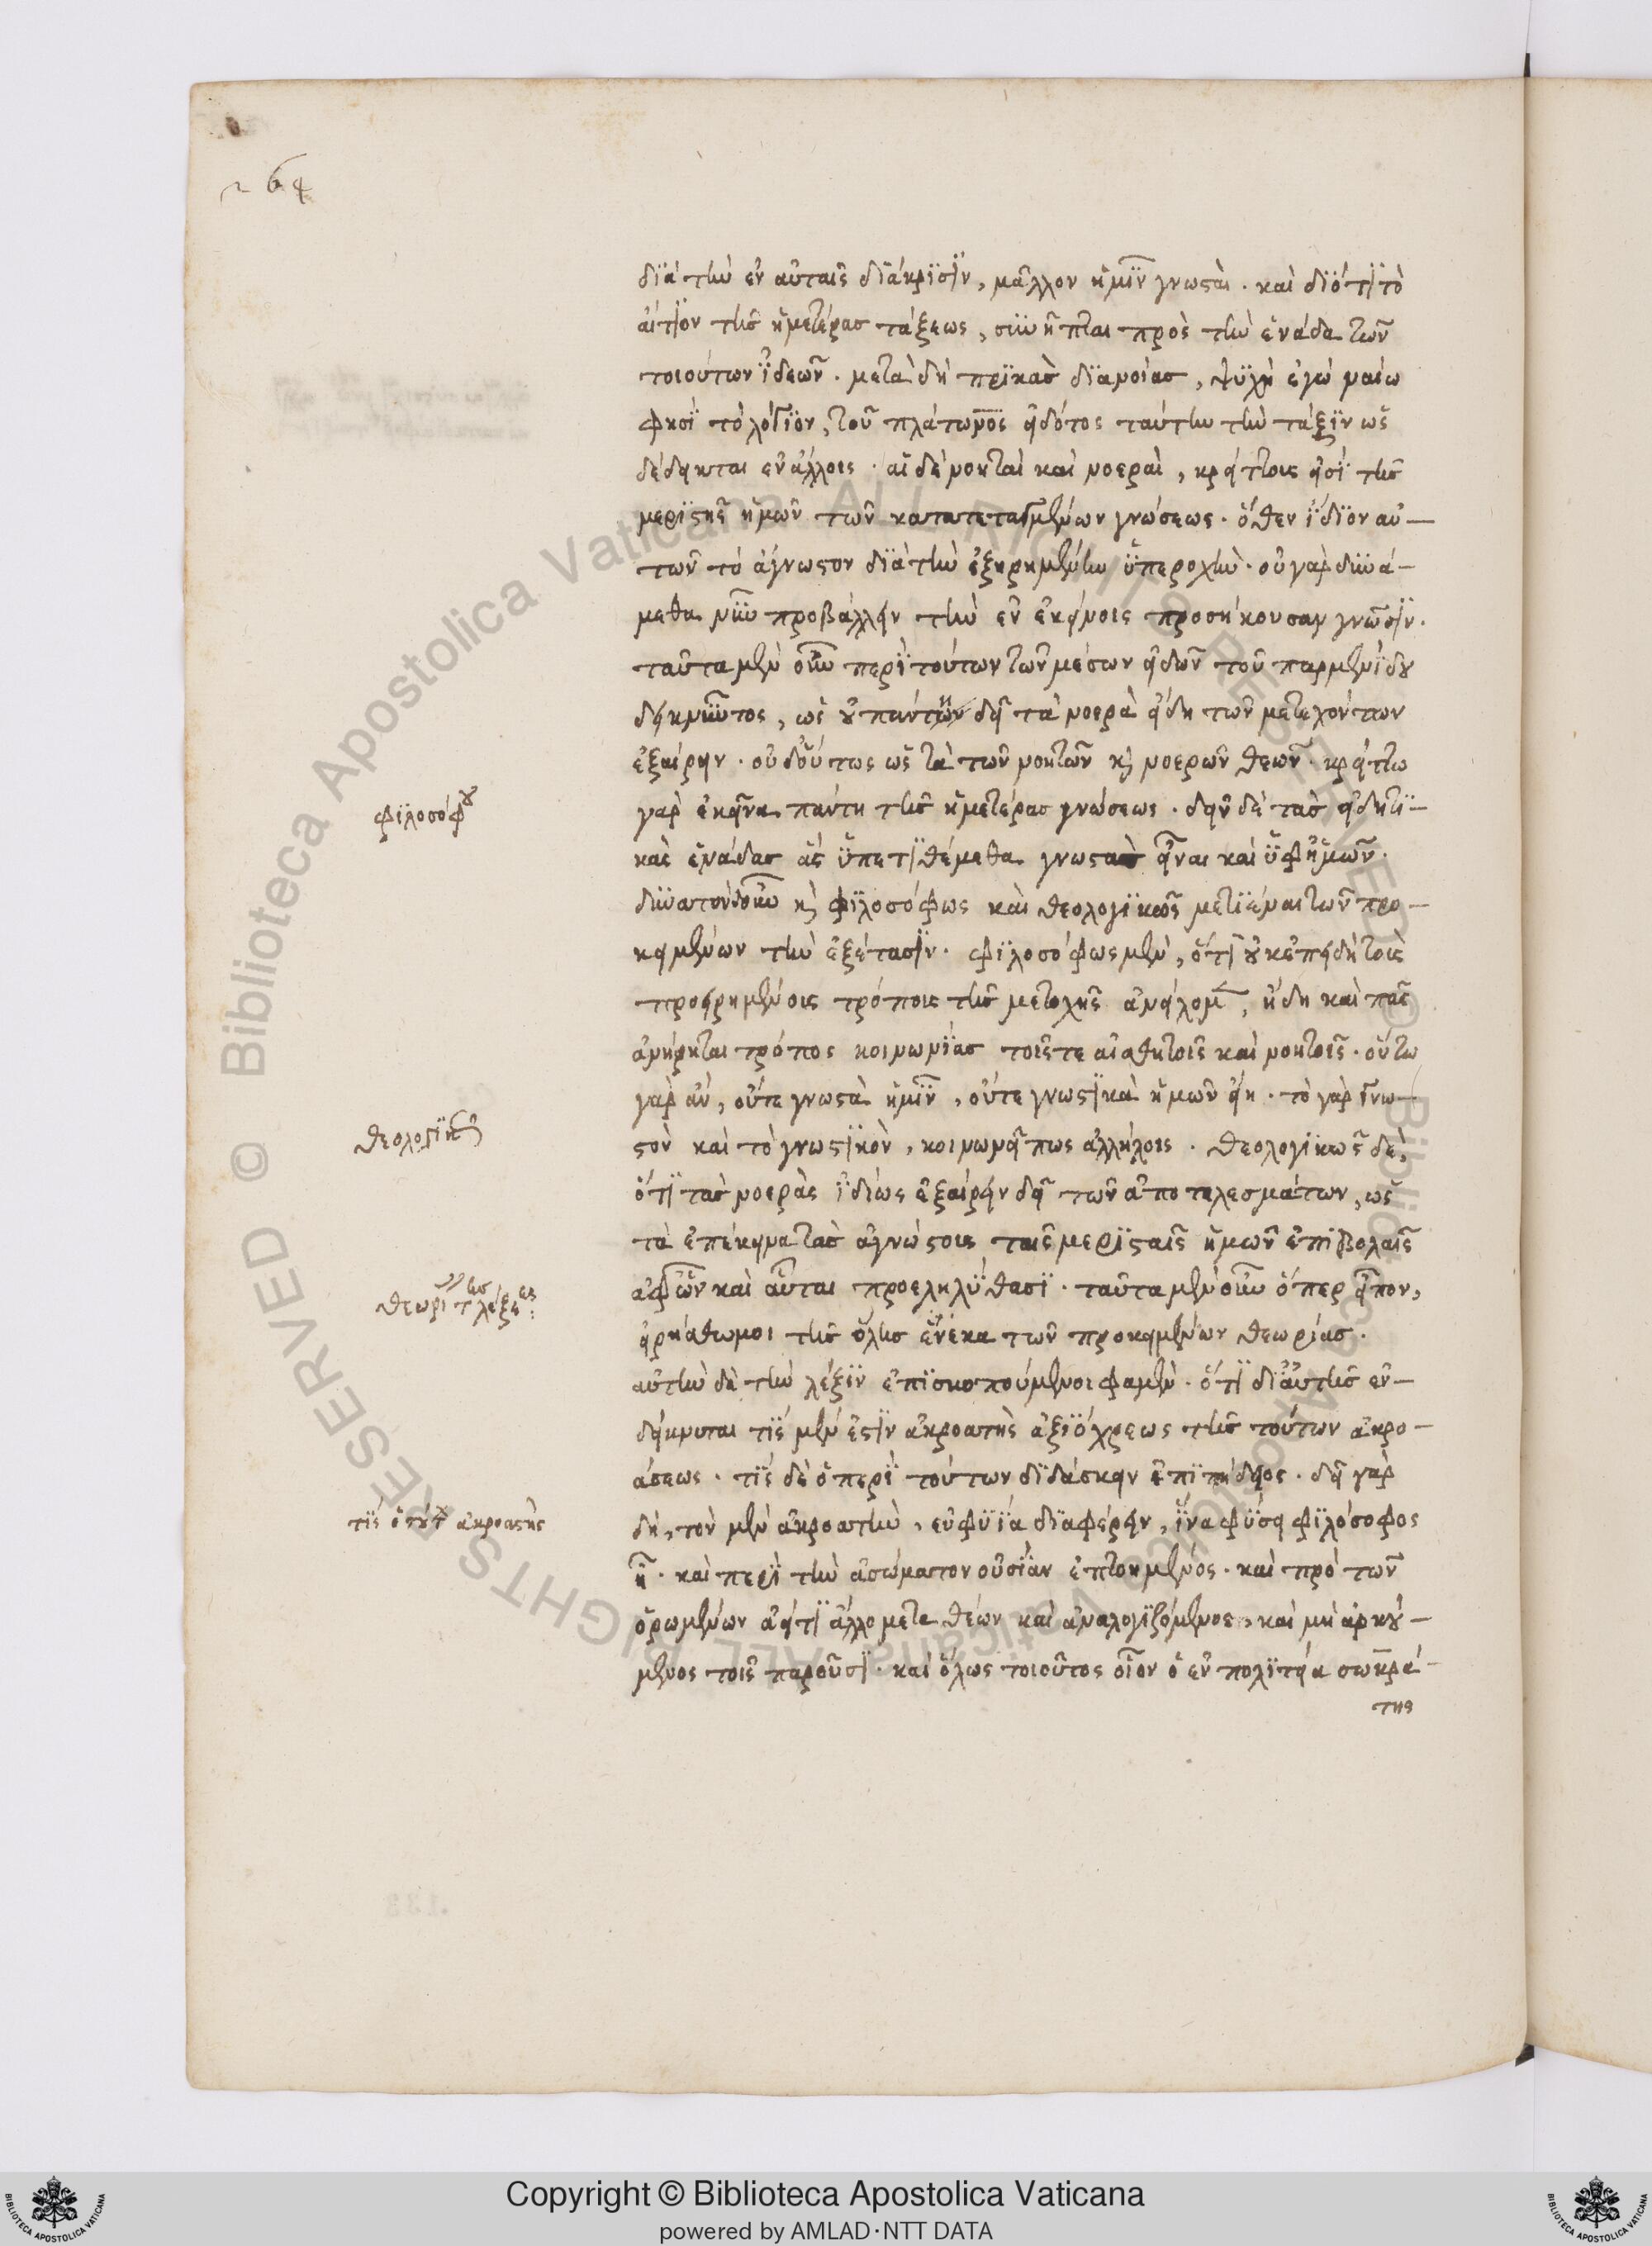 264
διὰ τὴν ἐν αὐταῖς διάκρισιν, μᾶλλον ἡμῖν γνωσταὶ. καὶ διότι τὸ
αἴτιον τῆς ἡμετέρας τάξεως, συνῆπται πρὸς τὴν ἑνάδα τῶν
τοιούτων ἰδεῶν. μετὰ δὴ πρικὰς διανοίας, ψυχὴ ἐγὼ ναίω
φησὶ τὸ λόγιον, τοῦ πλάτωνος εἰδότος ταύτην τὴν τάξιν ὡς
δέδεικται ἐν ἄλλοις. αἱ δὲ νοηταὶ καὶ νοεραὶ, κρείττοις εἰσὶ τῆς
μεριστῆς ἡμῶν τῶν κατατεταγμένων γνώσεως. ὅθεν ἴδιον αὐ-
τῶν τὸ ἄγνωστον διὰ τὴν ἐξηρημένην ὑπεροχὴν. οὐ γὰρ δυνά-
μεθα νῦν προβάλλειν τὴν ἐν ἐκείνοις προσήκουσαν γνῶσιν.
ταῦτα μὲν οὖν περὶ τούτων τῶν μέσων εἰδῶν τοῦ παρμενίδου
δεικνῦντος, ὡς οὐ πάντων δεῖ τὰ νοερὰ εἴδη τῶν μετεχόντων
ἐξαίρειν. οὐδ' οὕτως ὡς τὰ τῶν νοητῶν καὶ νοερῶν θεῶν. κρείττω
γὰρ ἐκεῖνα πάντη τῆς ἡμετέρας γνώσεως. δεῖν δὲ τὰς εἰδητι-
κὰς ἑνάδας ἃς ὑπετιθέμεθα γνωστὰς εἶναι καὶ ὑφ' ἡμῶν.
δυνατὸν δ' οὖν καὶ φιλοσόφως καὶ θεολογικῶς μετιέναι τῶν προ-
κειμένων τὴν ἐξέτασιν. φιλοσόφως μὲν, ὅτι οὐκ ἐπειδὴ τοὶς
προειρημένοις τρόποις τῆς μετοχῆς ἀνείλομεν, ἤδη καὶ πᾶς
ἀνήρηται τρόπος κοινωνίας τοῖς τε αἰσθητοῖς καὶ νοητοῖς. οὕτω
γὰρ ἂν, οὔτε γνωστὰ ἡμῖν, οὔτε γνωστικὰ ἡμῶν εἴη. τὸ γὰρ γνω-
στὸν καὶ τὸ γνωστικὸν, κοινωνεῖ πως ἀλλήλοις. θεολογικῶς δὲ,
ὅτι τὰς νοερὰς ἰδίως ἐξαίρειν δεῖ τῶν ἀποτελεσμάτων, ὡς
τὰ ἐπέκεινα τὰς ἀγνώστους ταῖς μερισταῖς ἡμῶν ἐπιβολαῖς
ἀφ' ὧν καὶ αὗται προεληλύθασι. ταῦτα μὲν οὖν ὅπερ εἶπον,
εἰρήσθω μοι τῆς ὅλης ἕνεκα τῶν προκειμένων θεωρίας.
αὐτὴν δὲ τὴν λέξιν ἐπισκοπούμενοι φαμὲν. ὅτι δι' αὐτῆς ἐν-
δείκνυται τίς μὲν ἐστὶν ἀκροατὴς ἀξιόχρεως τῆς τούτων ἀκρο-
άσεως. τίς δὲ ὁ περὶ τούτων διδάσκειν ἐπιτήδειος. δεῖ γὰρ
δὴ, τὸν μὲν ἀκροατὴν, εὐφυΐα διαφέρειν, ἵνα φύσει φιλόσοφος
ᾖ. καὶ περὶ τὴν ἀσώματον οὐσίαν ἐπτοημένος. καὶ πρὸ τῶν
ὁρωμένων ἀεί τι ἄλλο μεταθέων καὶ ἀναλογιζόμενος, καὶ μὴ ἀρκού-
μενος τοῖς παροῦσι. καὶ ὅλως τοιοῦτος οἷον ὁ ἐν πολιτεία σωκρά-
της
φιλοσόφου
θεολογικῶς
θεωρίας τῆς λέξεως
τίς ὁ τούτων ἀκροατὴς